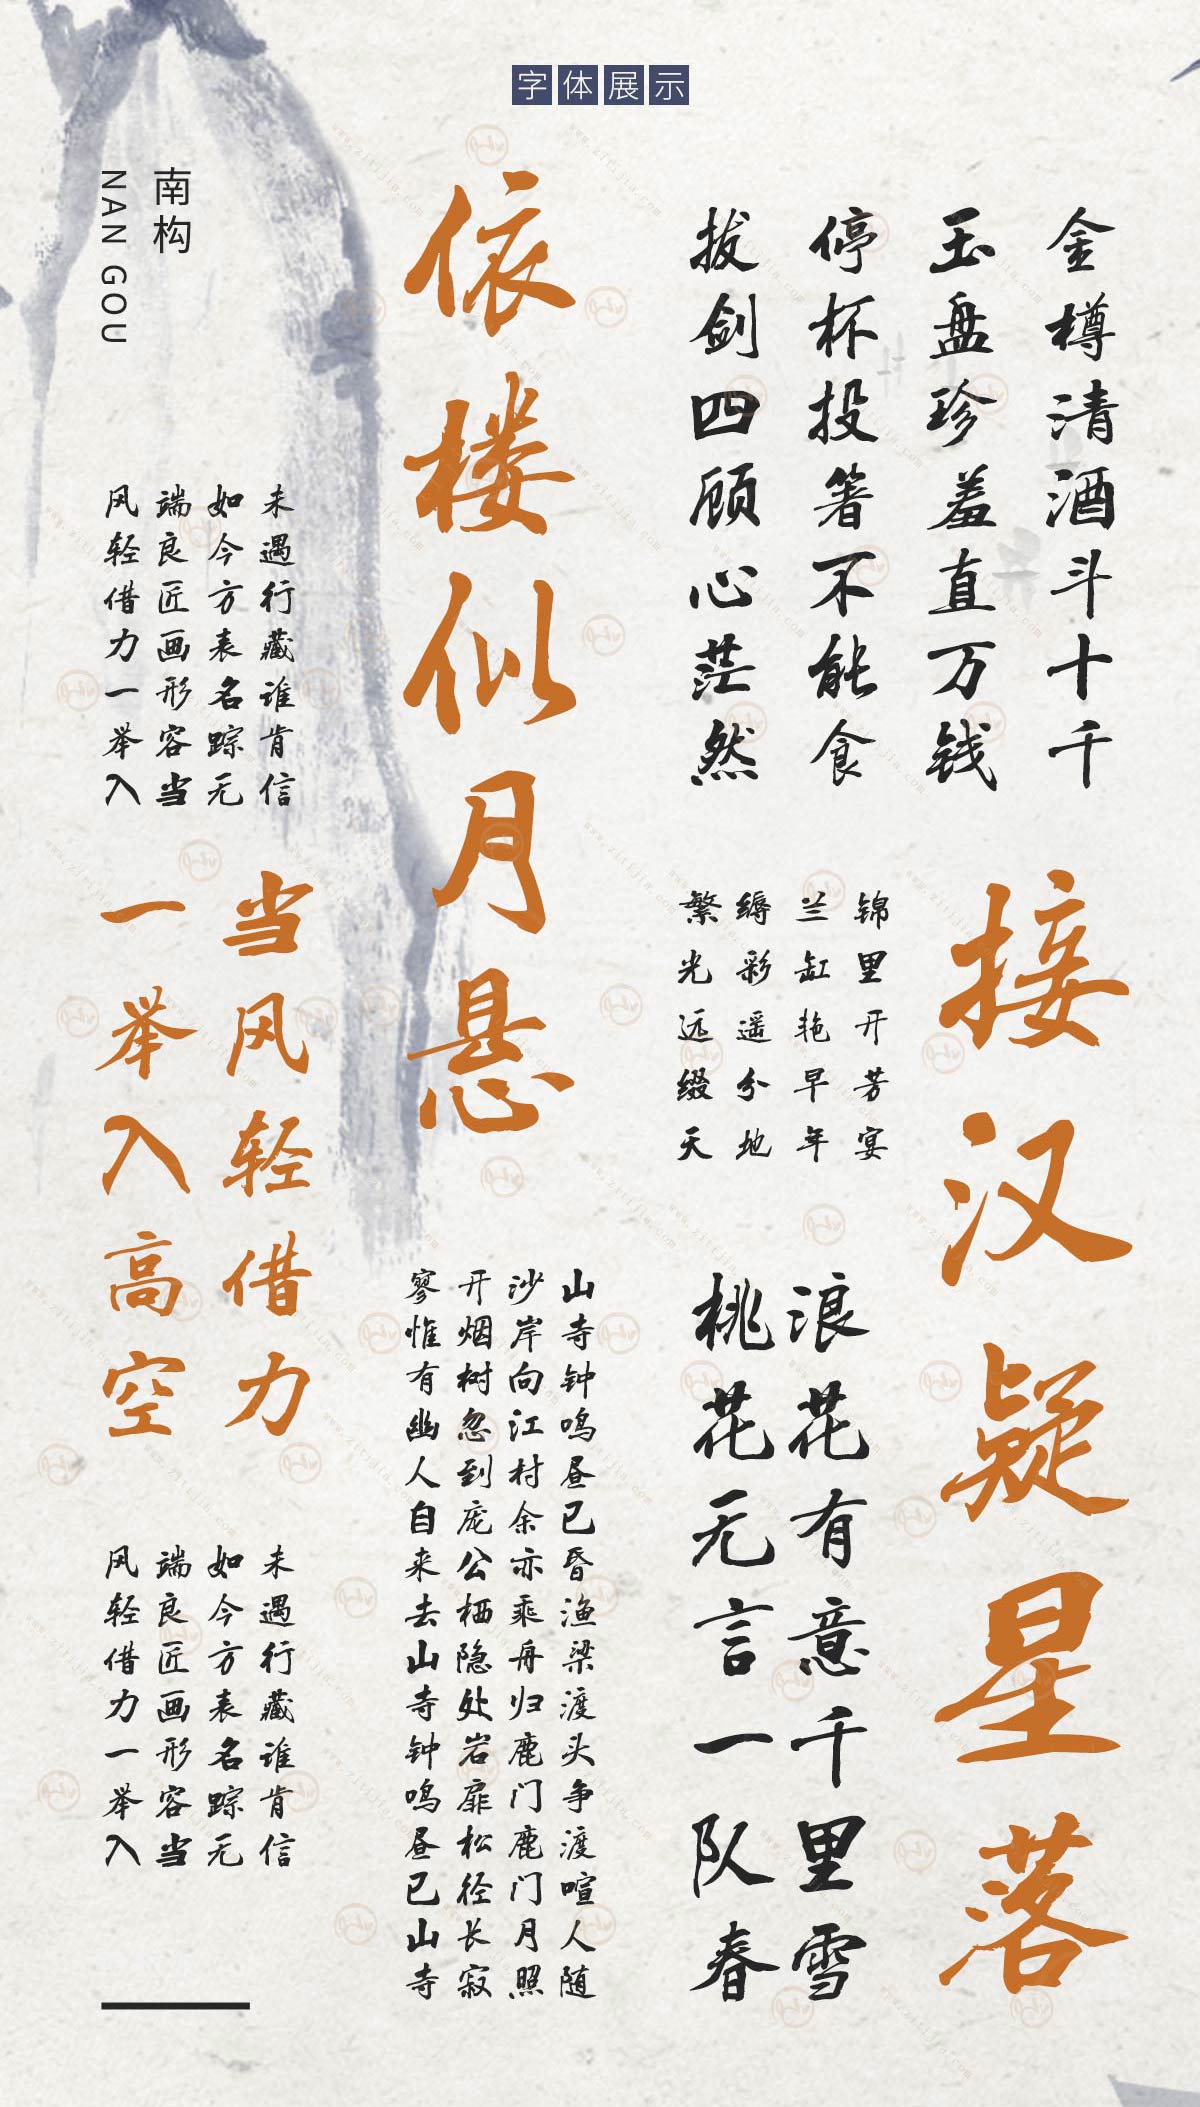 字体展示
金樽清酒斗十千
玉盘珍羞直万钱
停杯投箸不能食
拔剑四顾心茫然
接汉疑星落
锦里开芳宴
兰缸艳早年
缛彩遥分地
繁光远缀天
浪花有意千里雪
桃花无言一队春
依楼似月悬
山寺钟鸣昼已昏渔梁渡头争渡喧人随
沙岸向江村余亦乘舟归鹿门鹿门月照
开烟树忽到庞公栖隐处岩扉松径长寂
寥惟有幽人自来去山寺钟鸣昼已山寺
南构
NAN GOU
未遇行藏谁肯信
如今方表名踪无
端良匠画形容当
风轻借力一举入
当风轻借力
一举入高空
未遇行藏谁肯信
如今方表名踪无
端良匠画形容当
风轻借力一举入